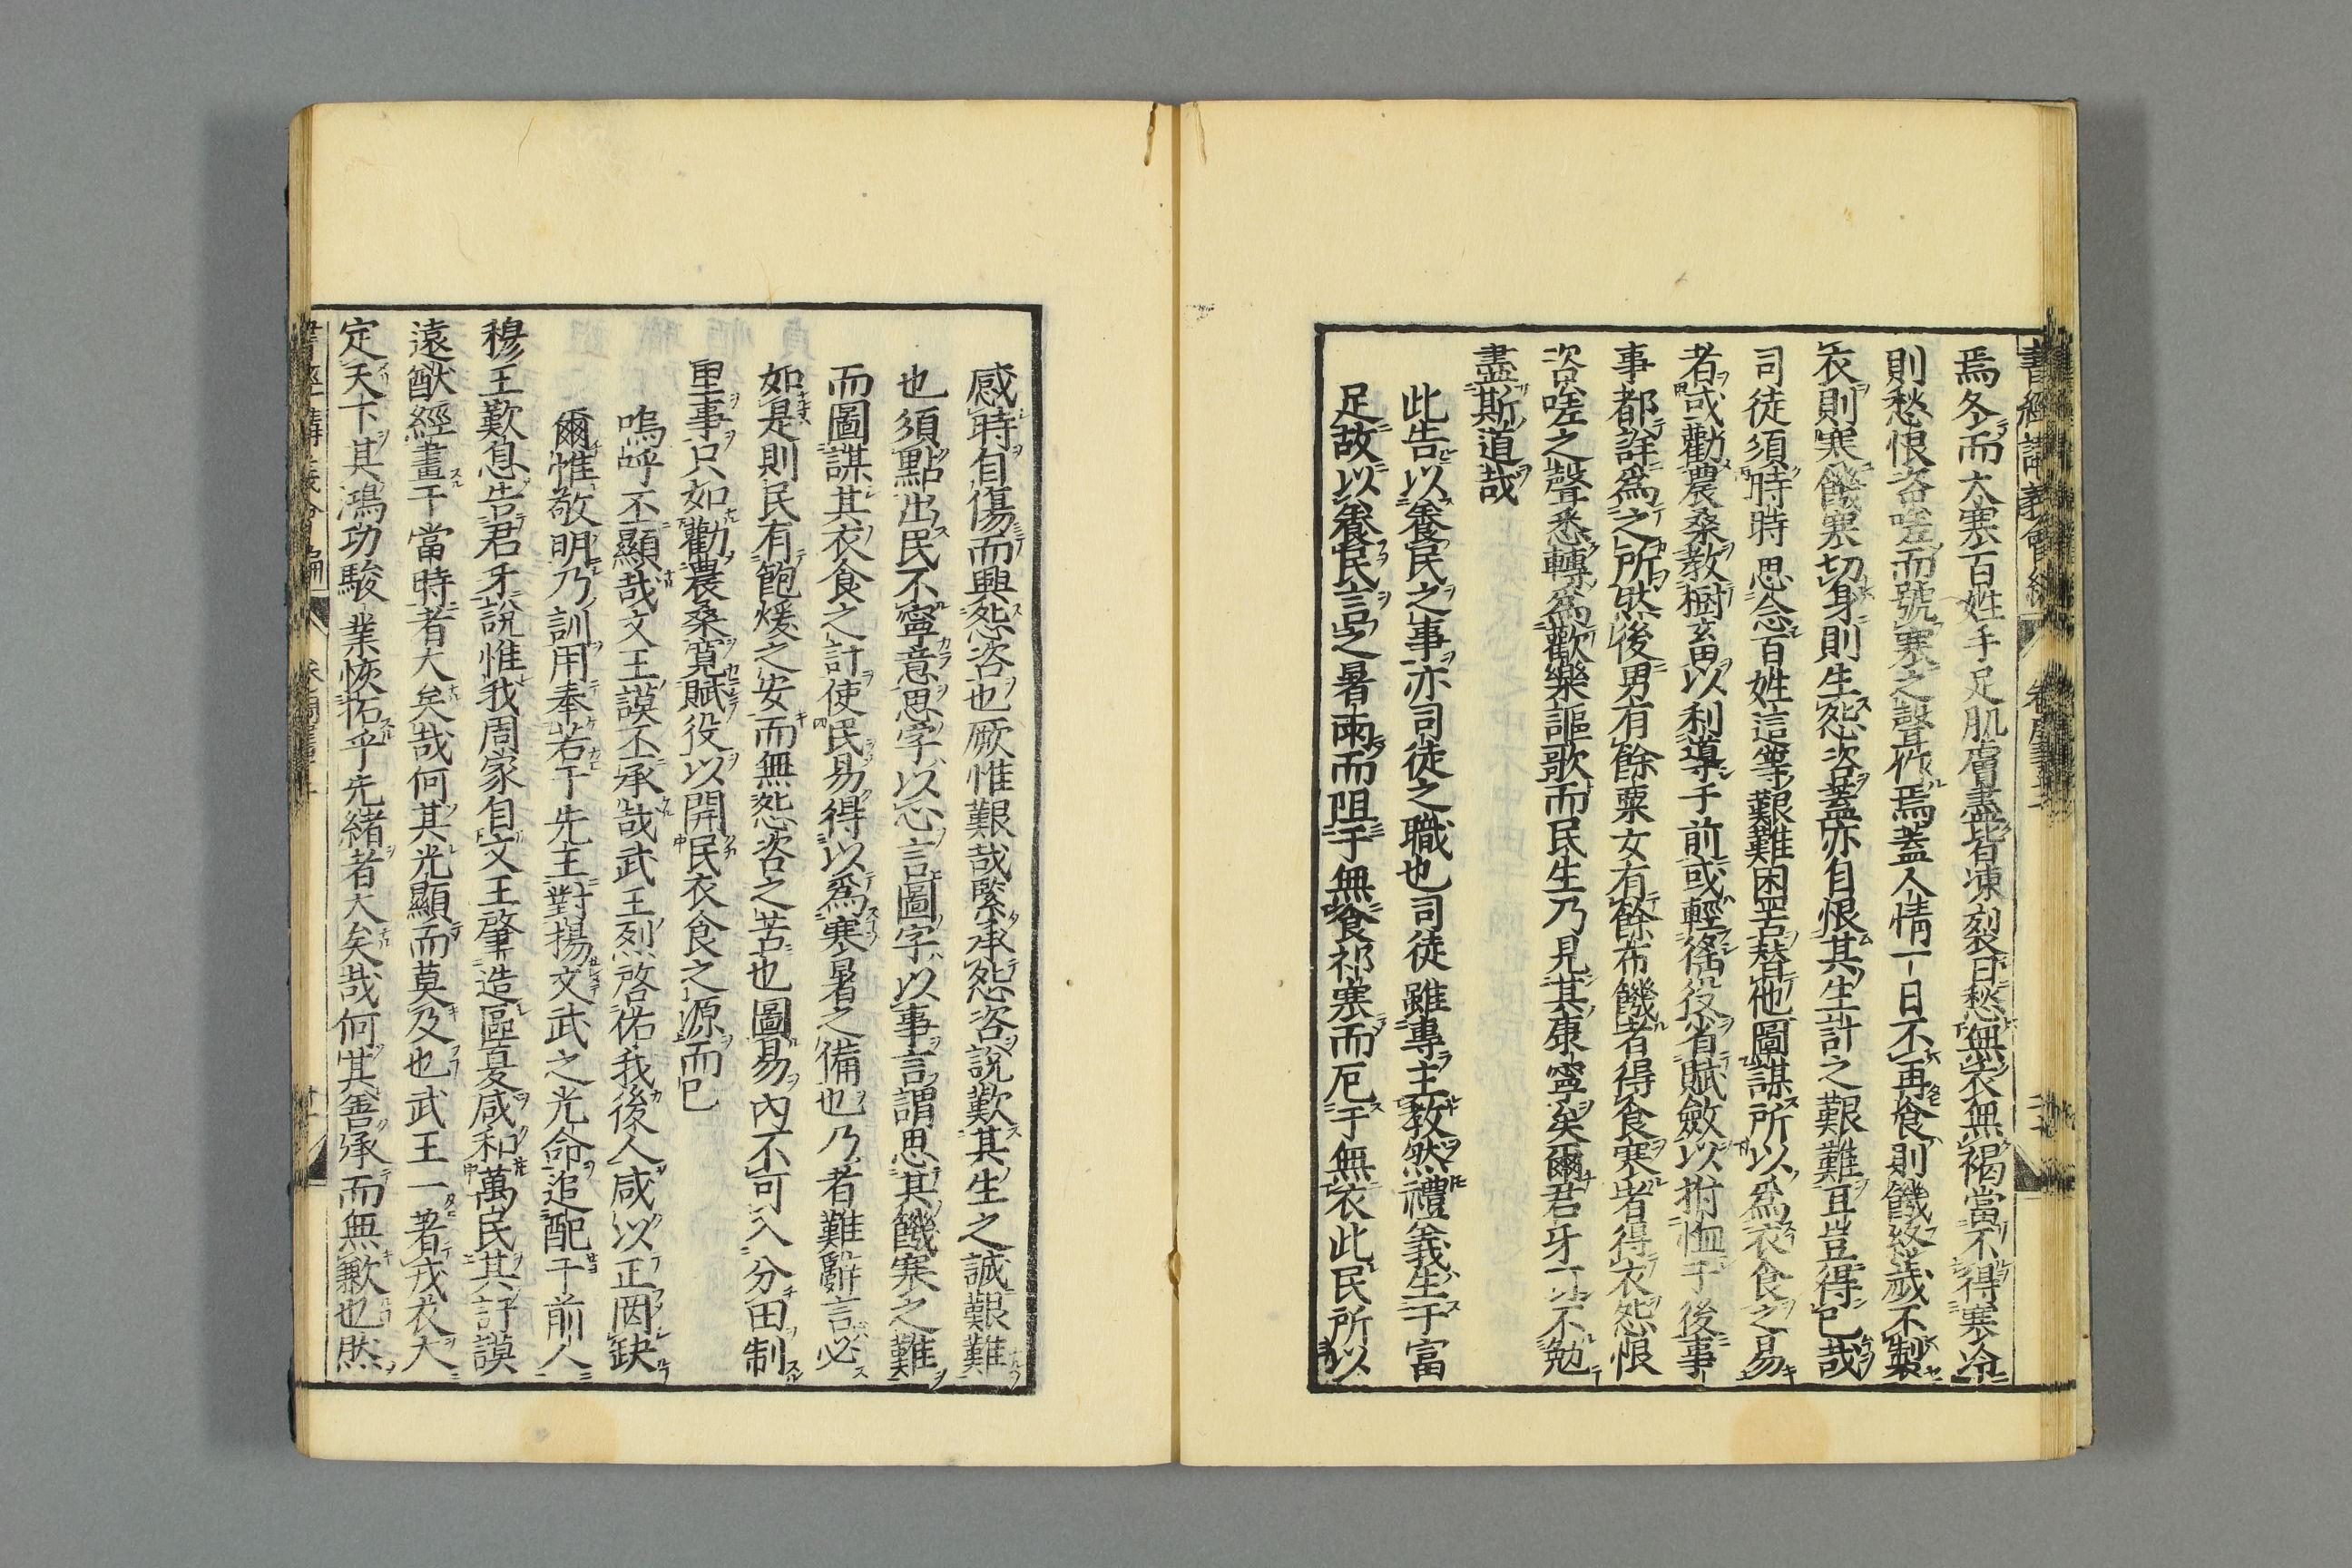 書經講義會編
焉冬而大寒百姓手足肌膚盡皆凍裂日愁無衣無褐當不得寒冷
則愁恨咨嗟而號寒之聲作焉蓋人情一日不再食則饑終歲不製
衣則寒饑寒切身則生怨咨蓋亦自恨其生計之艱難耳豈得已哉
司徒須時時思念百姓這等艱難困苦替他圖謀所以爲衣食之易
者或勸農桑教樹畜以利導于前或輕徭役省賦斂以拊恤于後事
事都詳爲之所然後男有餘粟女有餘布饑者得食寒者得衣怨恨
咨嗟之聲悉轉爲歡樂謳歌而民生乃見其康寧矣爾君牙可不勉
盡斯道哉
此告以養民之事亦司徒之職也司徒雖專主教然禮義生于富
足故以養民言之暑雨而阻于無食祁寒而厄于無衣此民所以
感時自傷而興怨咨也厥惟艱哉緊承怨咨說歎其生之誠艱難
也須點出民不寧意思字以心言圖字以事言謂思其饑寒之難
而圖謀其衣食之計使民易得以爲寒暑之備也乃者難辭言必
如是則民有飽煖之安而無怨咨之苦也圖易內不可入分田制
里事只如勸農桑寬賦役以開民衣食之源而已
嗚呼丕顯哉文王謨丕承哉武王烈啓佑我後人咸以正罔缺
爾惟敬明乃訓用奉若于先王對揚文武之光命追配于前人
穆王歎息告君牙說惟我周家自文王肇造區夏咸和萬民其訏謨
遠猷經畫于當時者大矣哉何其光顯而莫及也武王一著戎衣大
定天下其鴻功駿業恢拓乎先緒者大矣哉何其善承而無歉也然
書經講義會編